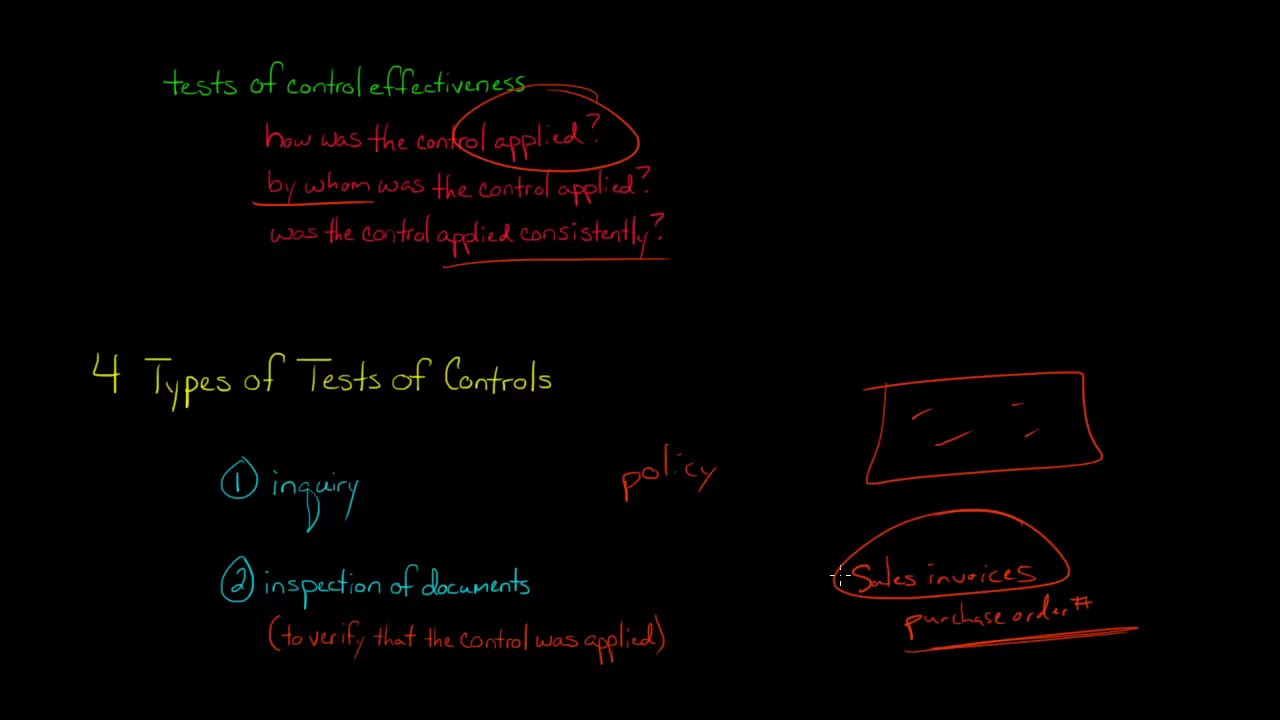 tests of control effectiveness
how was the control applied?
by whom was the control applied?
was the control applied consistently?
4 Types of Tests of Controls
1 inquiry
policy
2 inspection of documents
(to verify that the control was applied)
Sales invoices
purchase order #